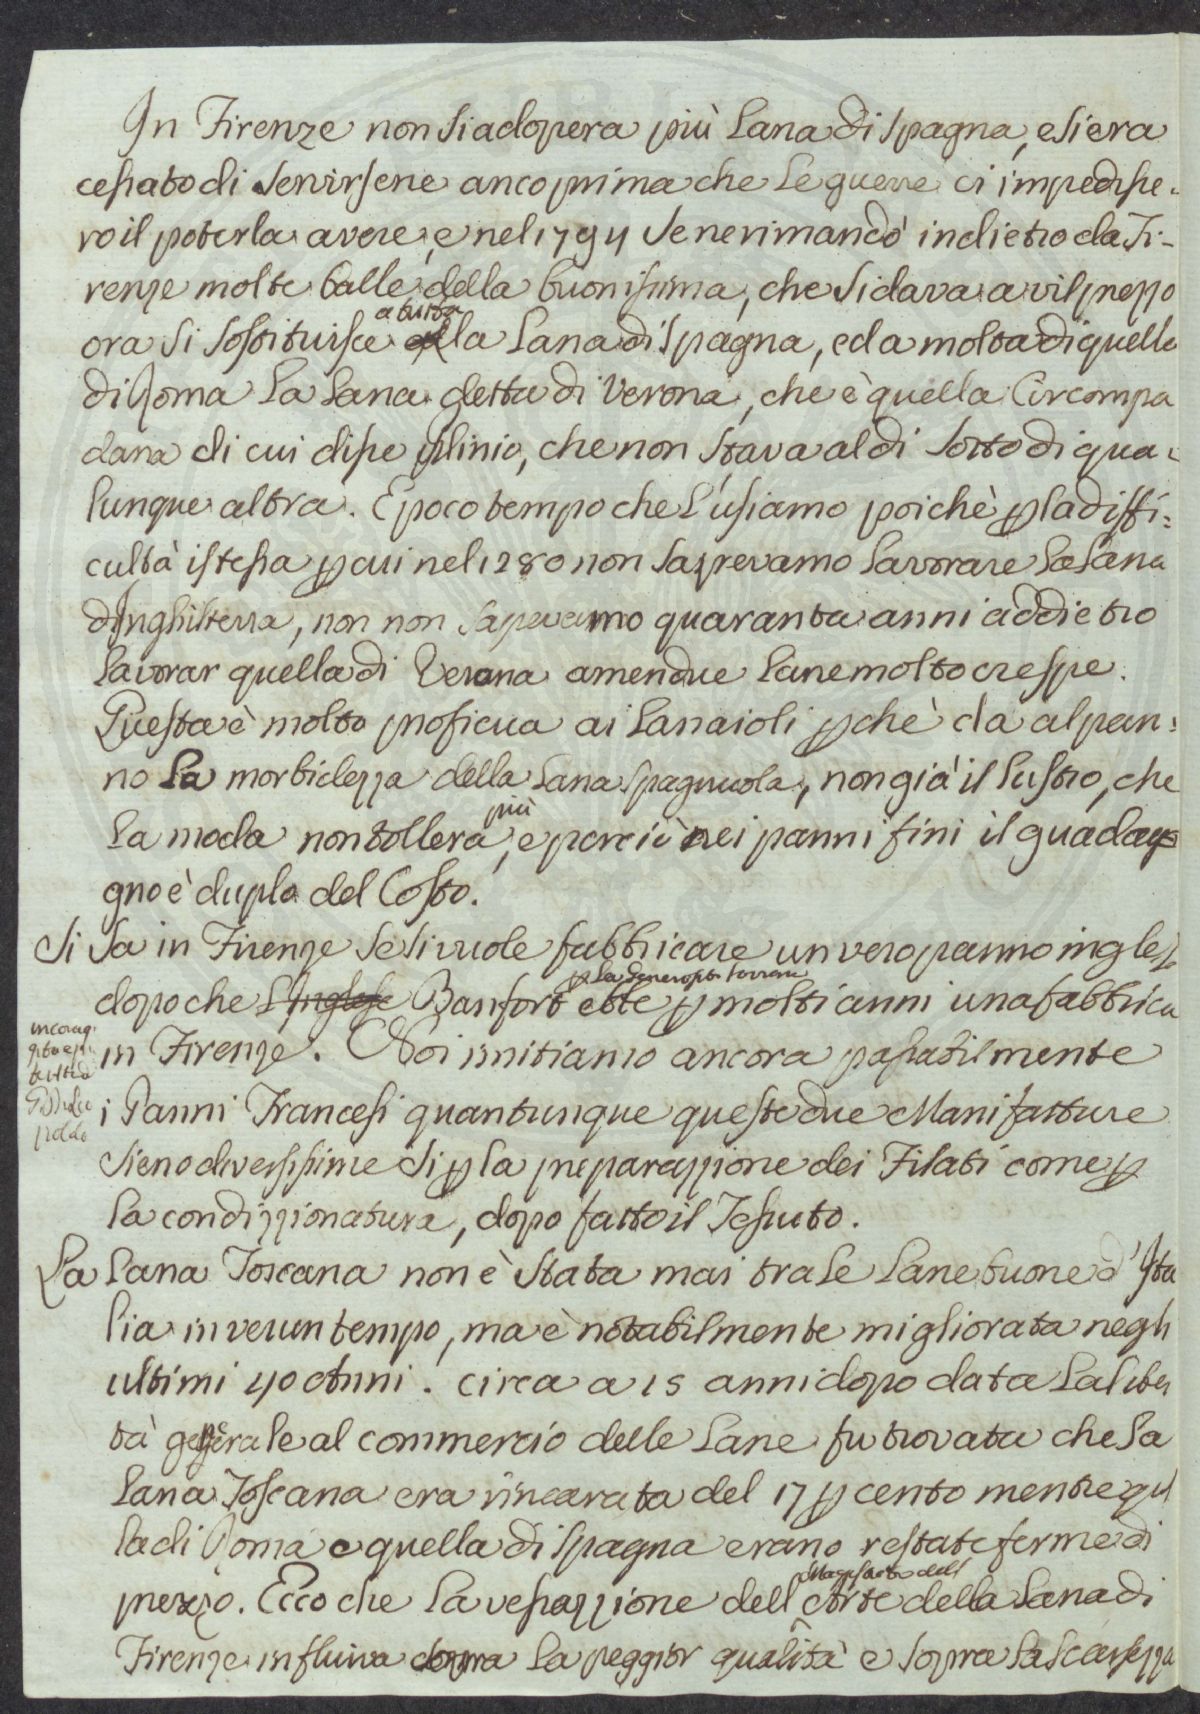 In Firenze non si adopera più Lana di Spagna, e si era
cessato di servirsene anco prima che le guerre ci impedisse-
ro il poterla avere, e nel 1794 se ne rimandò indietro da Fi-
renze molte balle della buonissima, che si dava a vil prezzo
a tutta
ora si sostituisce alla Lana di Spagna, ed a molta di quella
di Roma la Lana detta di Verona, che è quella Circompa
dana di cui disse Plinio, che non stava al di sotto di qua-
lunque altra. È poco tempo che l'usiamo poichè p la diffi=
cultà istessa p cui nel 1280 non sapevamo lavorare la Lana
d'Inghilterra, non non sapevamo quaranta anni addietro
lavorar quella di Verona amendue Lane molto crespe.
Questa è molto proficua ai Lanaioli pchè da al pan=
no la morbidezza della Lana Spagnuola, non già il lustro, che
più
la moda non tollera, e perciò nei panni fini il guada
gno è duplo del Costo.
Si sa in Firenze se si vuole fabbricare un vero panno ingle
p la
dopo che l'Inglese Banfort ebbe p molti anni una fabbrica
incorag
gito e
in Firenze. Noi imitiamo ancora passabilmente
Leo
poldo
i Panni Francesi quantunque queste due Manifatture
sieno diversissime si p la preparazzione dei Filati come p
la condizzionatura, dopo fatto il Tessuto.
La Lana Toscana non è stata mai tra le Lane buone d'Ita
lia in verun tempo, ma è notabilmente migliorata negli
ultimi 40 Anni. Circa a 15 anni dopo data la liber
tà generale al commercio delle Lane fu trovata che la
Lana Toscana era rincarata del 17 p cento mentre qu
la di Roma e quella di Spagna erano restate ferme di
Magistrato dell
prezzo. Ecco che la vessazzione dell'Arte della Lana di
Firenze influiva sopra la peggior qualità e sopra la scarsezza